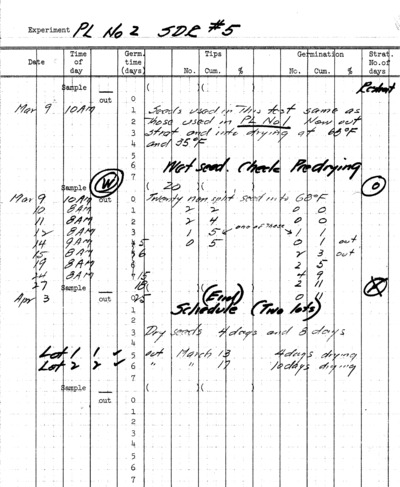 Experiment PL No 2 SDL #5
Time Germ. Tips Germination Strat.
Date of time No. of
day (days) No. Cum. % No. Cum. % days
Sample ( )( ) Restrat
out 0
Mar 9 10AM 1 Seeds used in This test same as
2 Those used in PL No 1 Now out
3 strat and into drying at 68°F
4 and 35°F
5
6 Wet seed. Check Predrying
7
Sample W ( 20 )( ) 0
Mar 9 10AM out 0 Twenty non split seed into 68°F
10 8AM 1 2 2 0 0
11 8AM 2 2 4 0 0
12 8AM 3 1 5 one of these 1 1
14 9AM 5 0 5 0 1 out
15 8AM 6 2 3 out
19 8AM 2 5
24 8AM 15 4 9
27 18 2 11
Sample (End) X
Apr 3 out 25 0 11
1 Schedule (Two lots)
2
3 Dry seeds 4 days and 8 days
4
Lot 1 1 ✓ 5 out March 13 4 days drying
Lot 2 2 ✓ 6 " " 17 10 days drying
7
Sample ( )( )
out 0
1
2
3
4
5
6
7